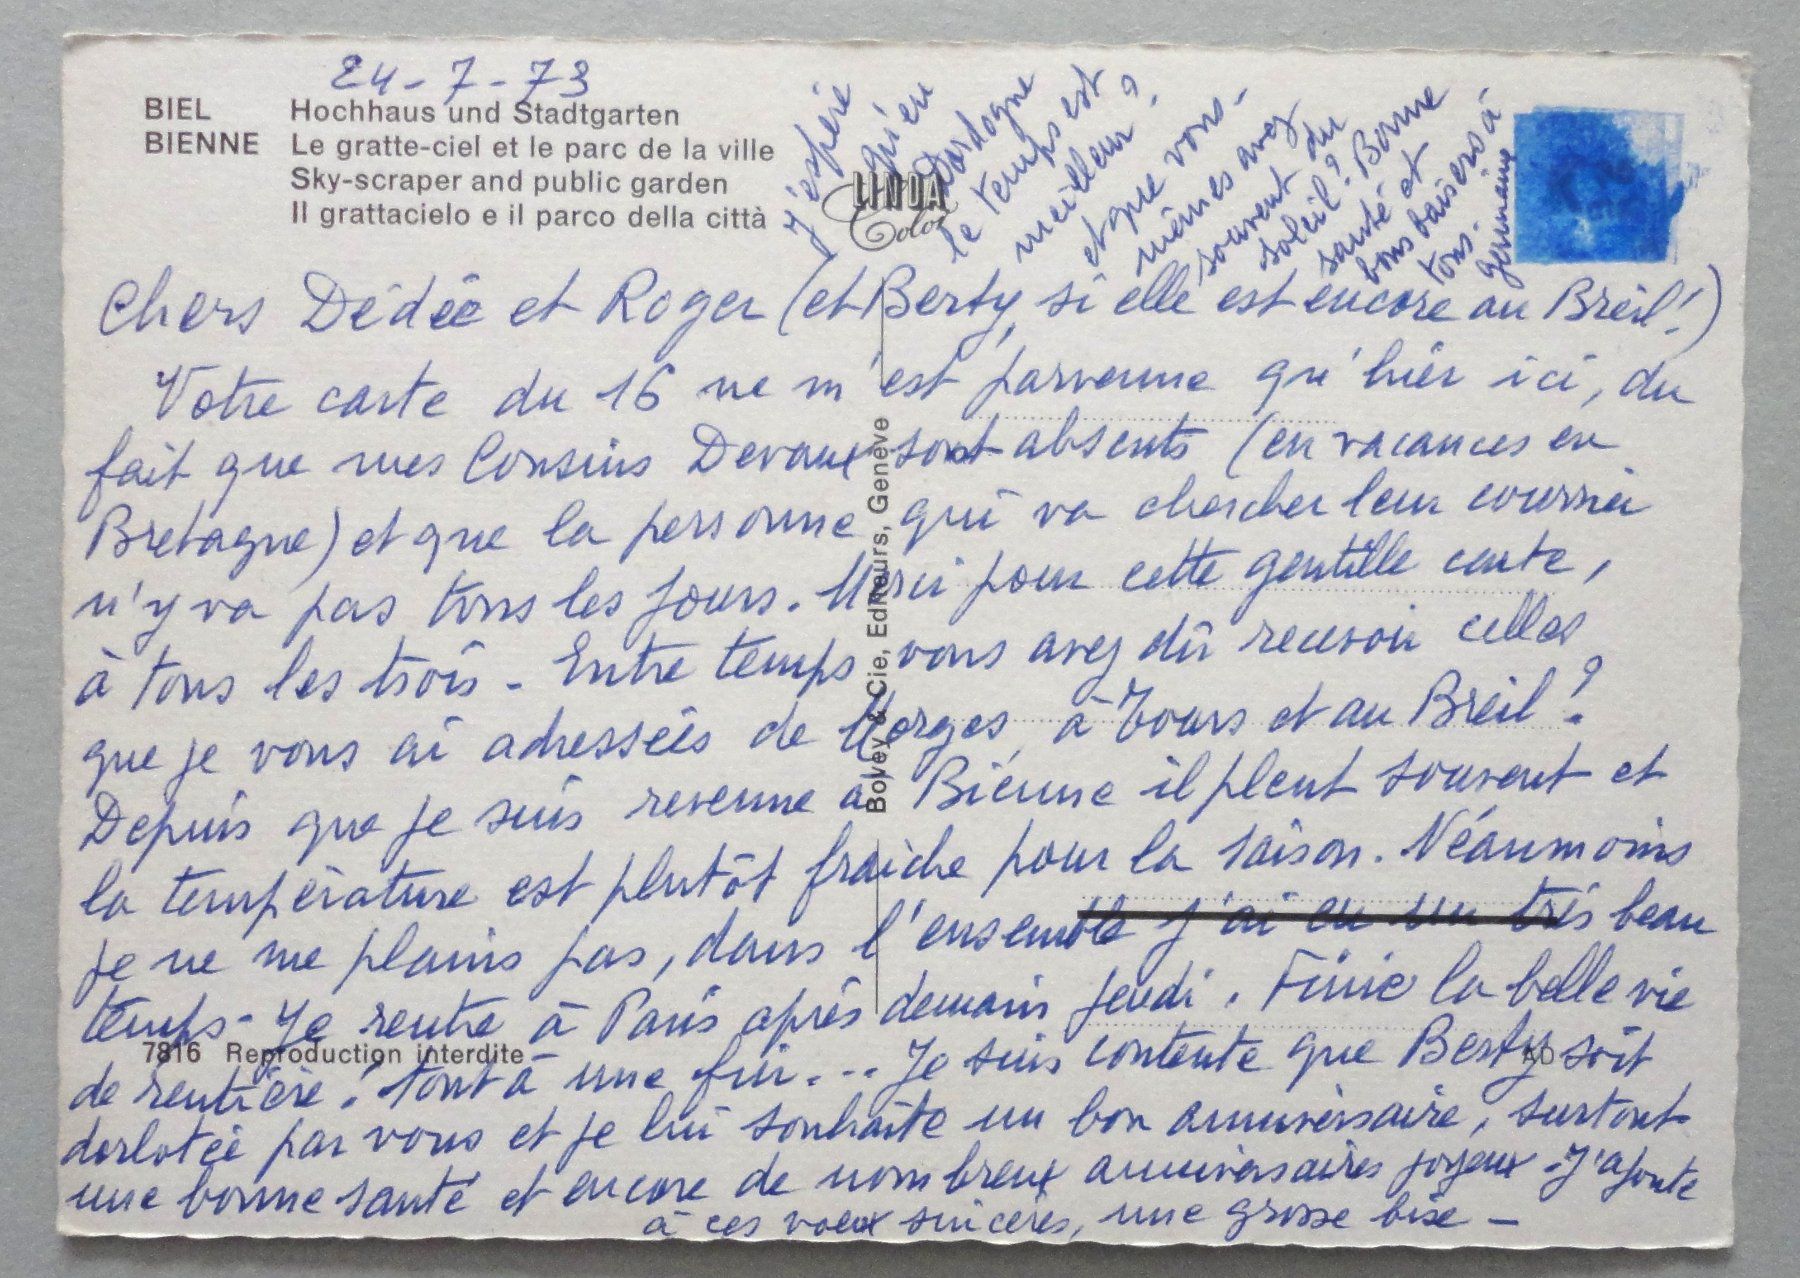 24-7-73
BIEL Hochhaus und Stadtgarten
BIENNE Le gratte-ciel et le parc de la ville
Sky-scraper and public garden
Il grattacielo e il parco della città
LINDA
Color
Chers Dédée et Roger (et Berty, si elle est encore au Breil!)
Votre carte du 16 ne m'est parvenue qu'hier ici, du
fait que mes Cousins Devaux sont absents (en vacances en
Bretagne) et que la personne qui va chercher leur courrier
n'y va pas tous les jours. Merci pour cette gentille carte,
à tous les trois - Entre temps vous avez dû recevoir celles
que je vous ai adressées de Morges, à Tours et au Breil?
Depuis que je suis revenue à Bienne il pleut souvent et
la température est plutôt fraîche pour la saison. Néaumoins
je ne me plains pas, dans l'ensemble j'ai eu un très beau
temps - Je rentre à Paris après demain jeudi. Finie la belle vie
de rentière! tout à une fin... Je suis contente que Berty soit
dorlotée par vous et je lui souhaite un bon anniversaire, surtout
une bonne santé et encore de nombreux anniversaires joyeux. J'ajoute
à ces voeux sincères, une grosse bise -
j'espère
qu'en
Dordogne
le temps est
meilleur?
et que vous-
mêmes avez
souvent du
soleil? Bonne
santé et
bons baisers à
tous.
Germaine
Bovey & Cie, Editeurs, Genève
7816 Reproduction interdite
AD